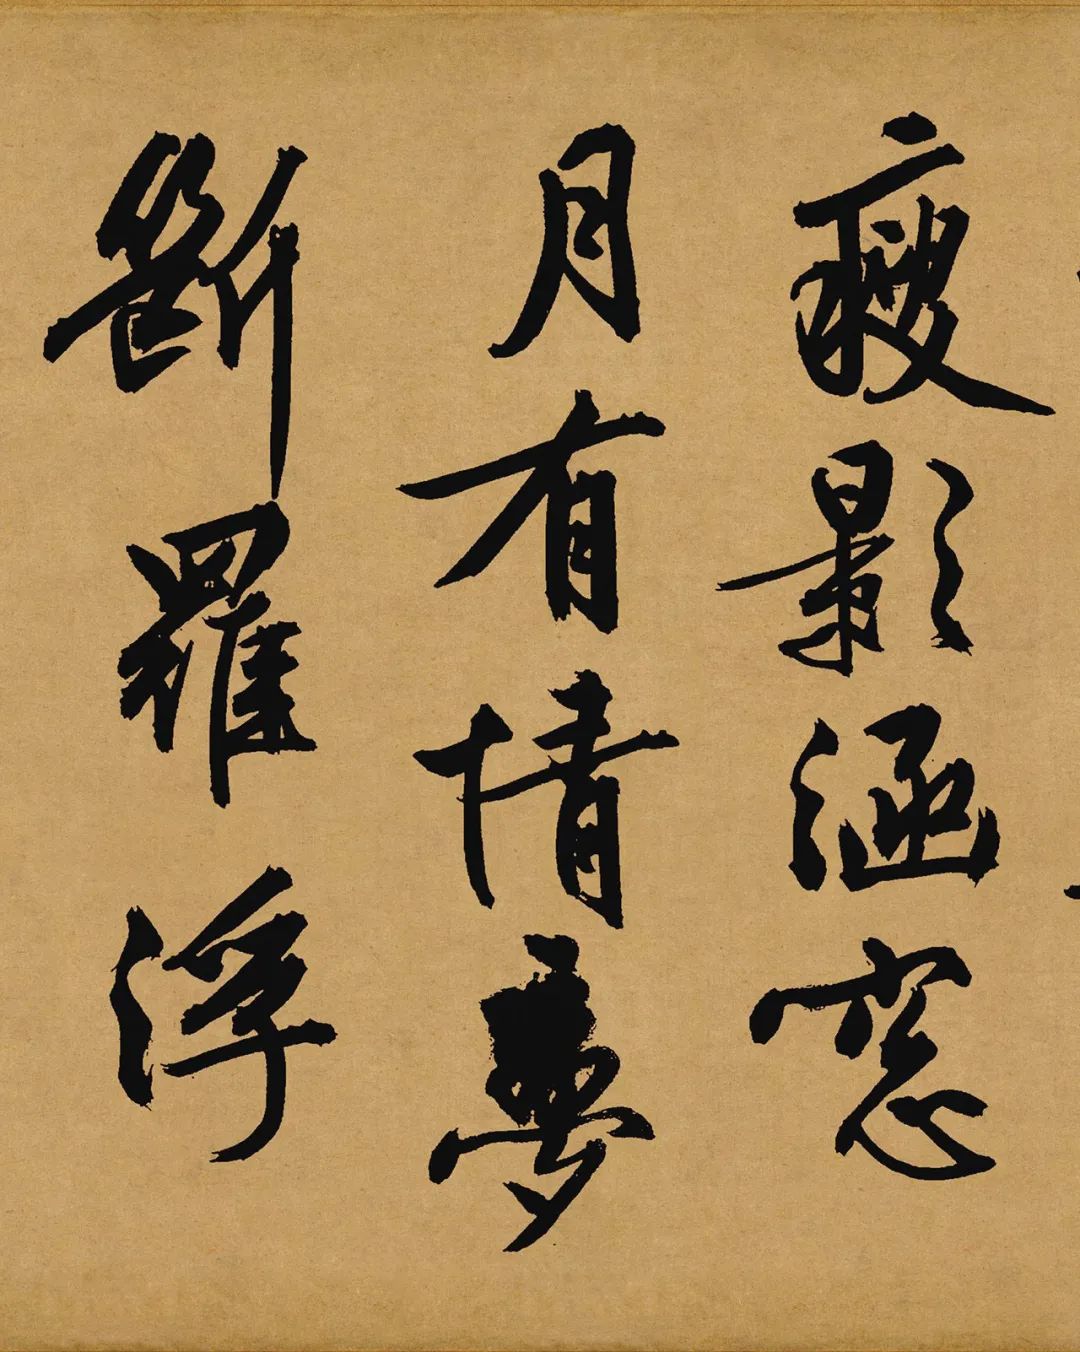 瘦影涵窓
月有情夢
斷羅浮